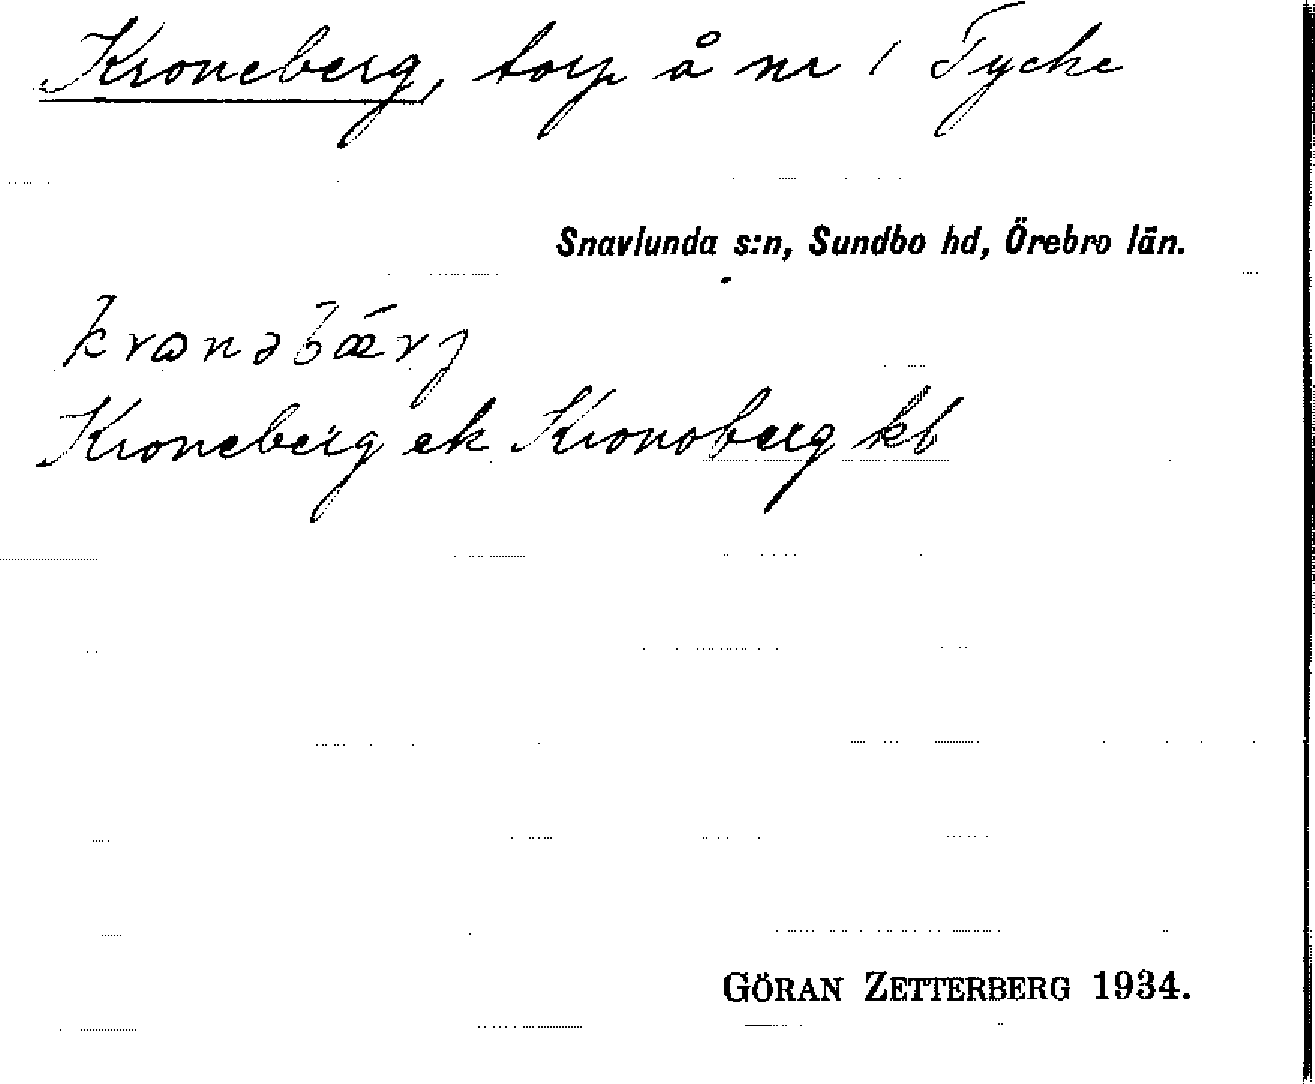 Kroneberg, torp å nr 1 Tyche
Snavlunda s:n, Sundbo hd, Örebro län.
Kroneberg ek Kronoberg kb
GÖRAN ZETTERBERG 1934.